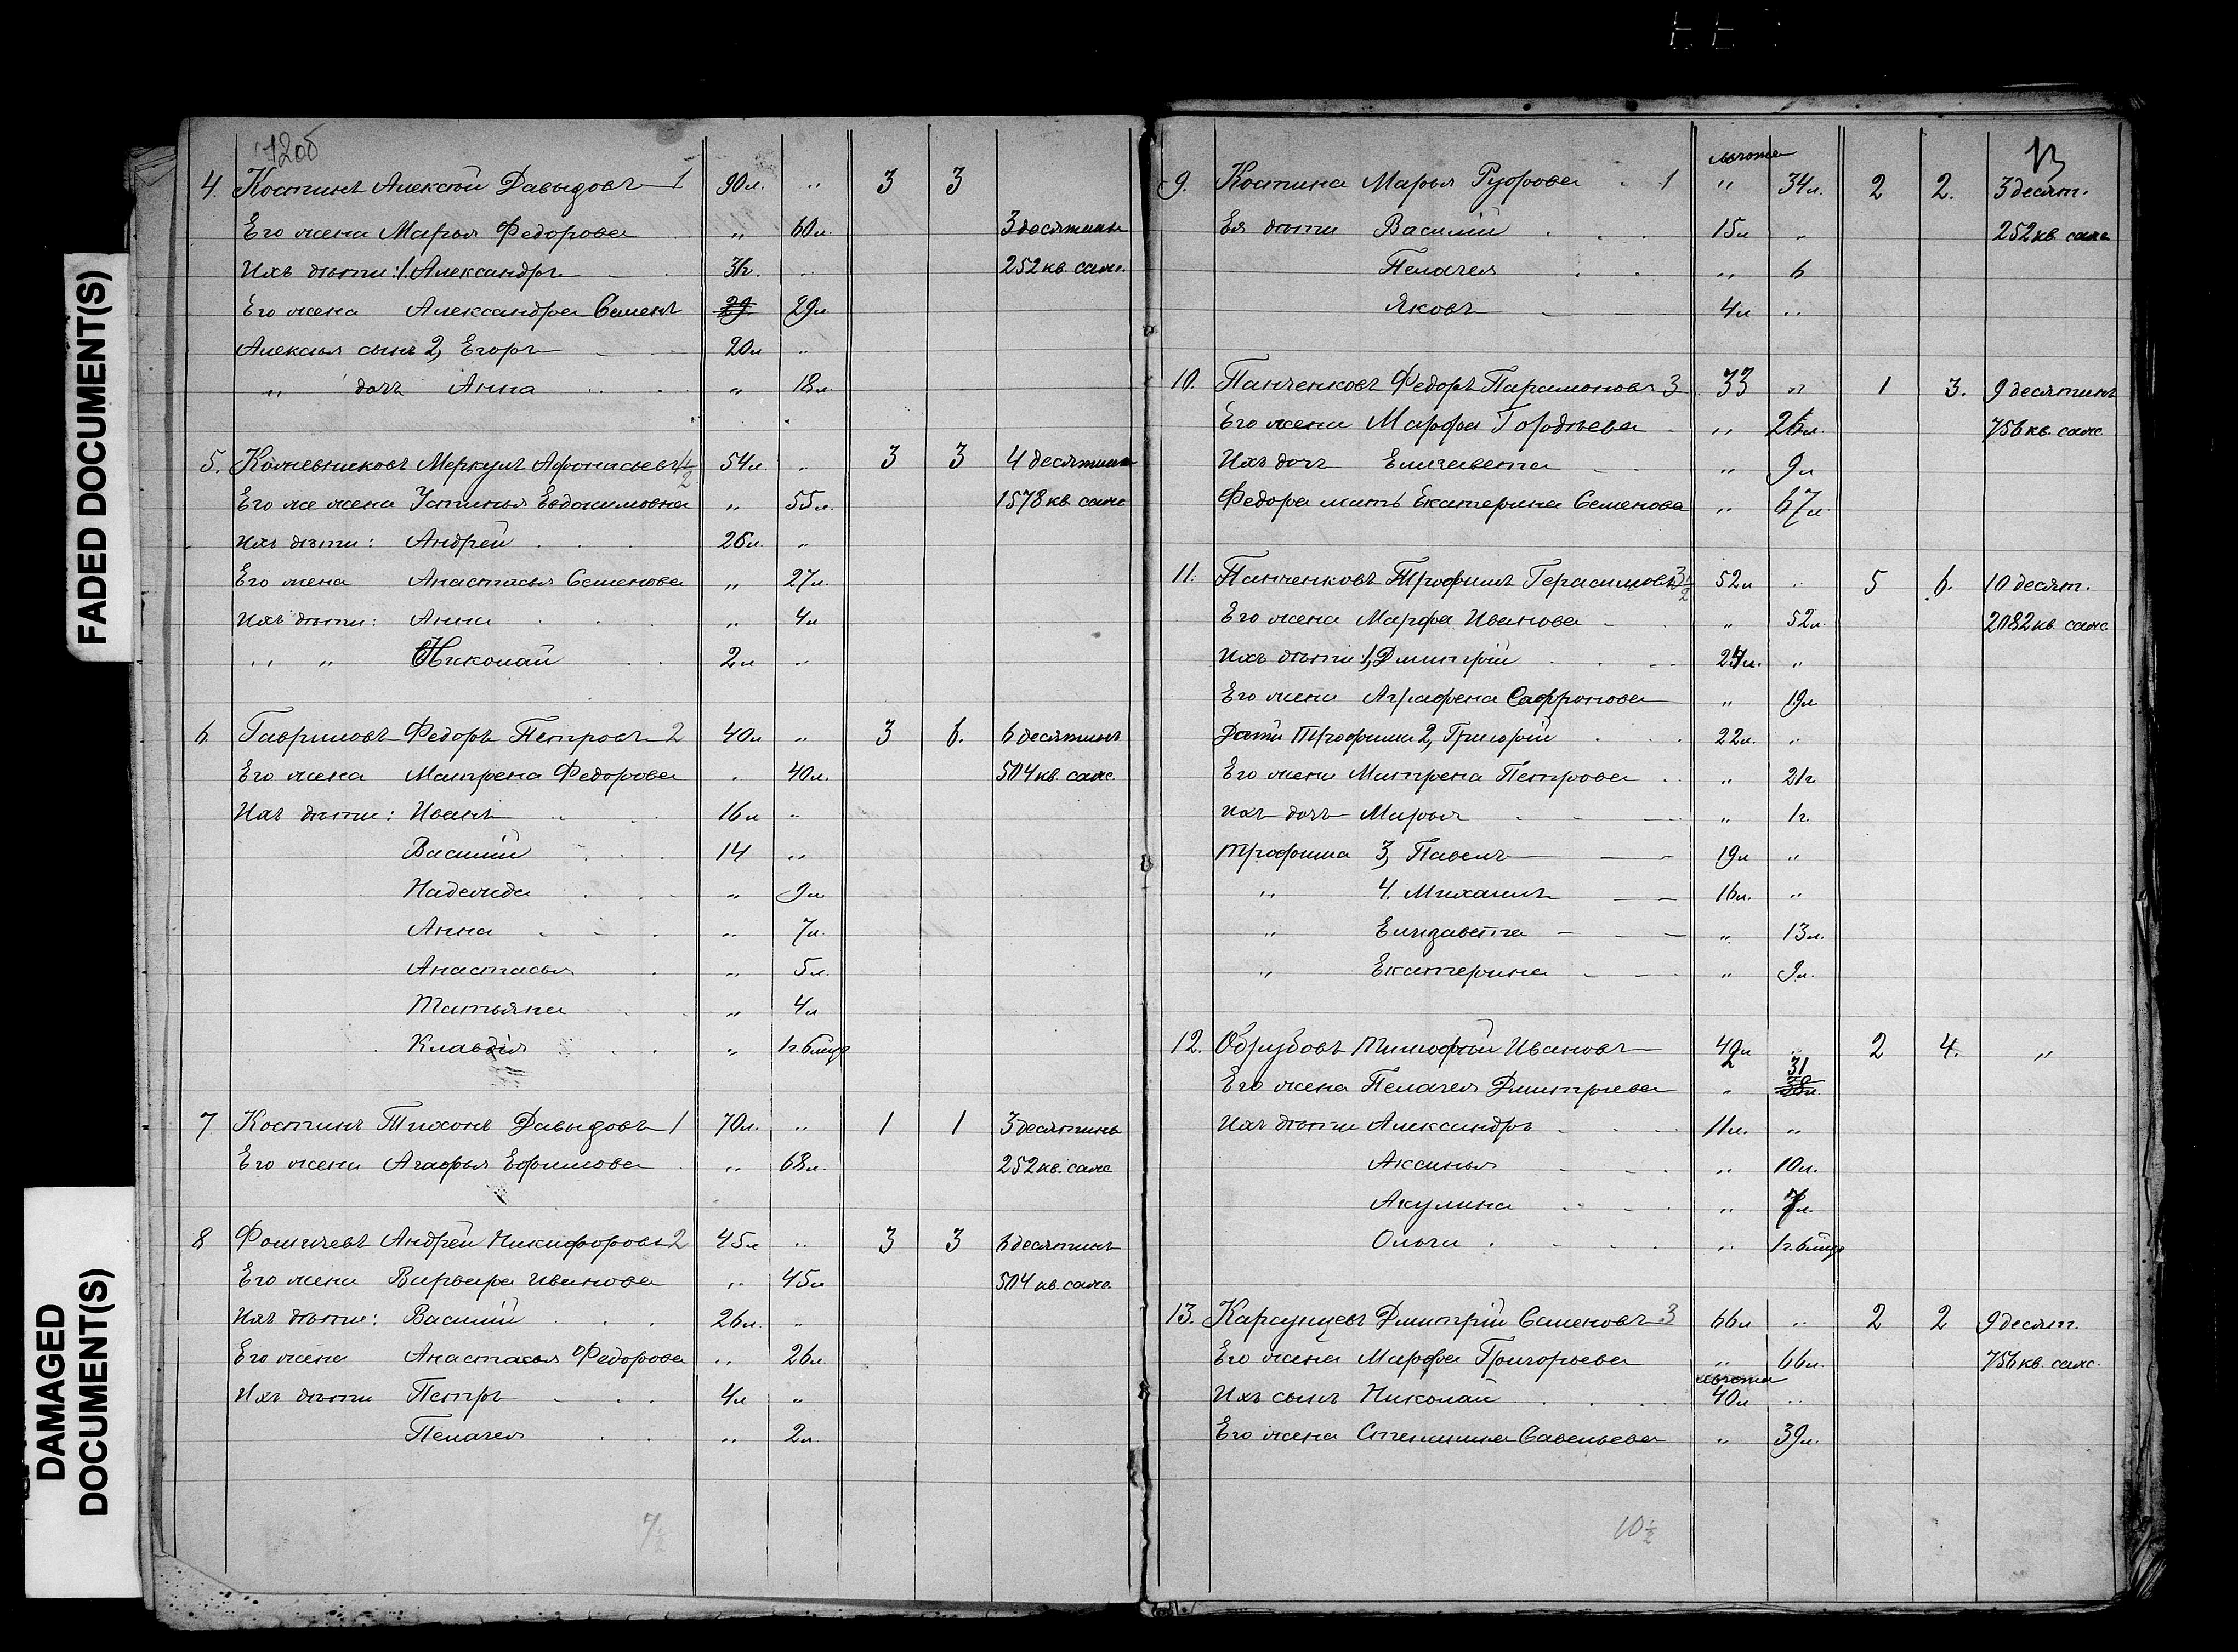 FADED DOCUMENT(S)
DAMAGED DOCUMENT(S)
12об
4. Костинъ Алексѣй Давыдовъ 1 90л. " 3 3
Его жена Марья Федорова " 60л. 3 десятины
Ихъ дѣти: 1. Александръ 31г. " 252 кв. саж.
Его жена Александра Семен 29л
Алексѣя сынъ 2, Егоръ 20л "
" дочь Анна " 18л.
5. Кожевниковъ Меркулъ Афонасьевъ 1/2 54л. " 3 3 4 десятины
Его же жена Устинья Евдокимовна " 55л. 1578 кв саж
Ихъ дѣти: Андрей 26л. "
Его жена Анастасья Семенова " 27л.
Ихъ дѣти: Анна " 4л
" " Николай 2л "
6. Гавриловъ Федоръ Петровъ 2 40л " 3 6. 6 десятинъ
Его жена Матрена Федорова " 40л. 504 кв. саж.
Ихъ дѣти: Иванъ 16л "
Василій 14 "
Надежда " 9л
Анна " 7л.
Анастасья " 5л.
Татьяна " 4л
Клавдія " 1г. 6мцѣ
7. Костинъ Тихонъ Давыдовъ 1 70л. " 1 1 3 десятины
Его жена Агафья Ефимова " 68л. 252 кв. саж
8 Фомичевъ Андрей Никифоровъ 2 45л " 3 3 6 десятинъ
Его жена Варвара Иванова " 45л 504 кв. саж.
Ихъ дѣти: Василій 26л. "
Его жена Анастасья Федорова " 26л.
Ихъ дѣти Петръ 4л "
Пелагея " 2л.
7 1/2
13
льгота
9. Костина Марья Руфова 1 " 34л. 2 2. 3 десят.
Ея дѣти Василій 15л " 252 кв саж
Пелагея " 6
Яковъ 4л "
10. Панченковъ Федоръ Парамоновъ 3 33 " 1 3. 9 десятинъ
Его жена Марфа Гордѣева " 26л. 756 кв. саж
Ихъ дочь Елизавета " 9л
Федора мать Екатерина Семенова " 67л
11. Панченковъ Трофимъ Герасимовъ 3 1/2 52л " 5 6. 10 десят.
Его жена Марфа Иванова " 52л. 2082 кв саж
Ихъ дѣти: 1, Дмитрій 24л. "
Его жена Аграфена Сафронова " 19л
Дѣти Трофима 2, Григорій 22л. "
Его жена Матрена Петрова " 21г
Ихъ дочь Марья " 1г.
Трофима 3, Павелъ 19л "
" 4. Михаилъ 16л. "
" Елизавета " 13л.
" Екатерина " 9л.
12. Обрубовъ Тимофѣй Ивановъ 42 " 2 4. "
Его жена Пелагея Дмитриева " 31
Ихъ дѣти Александръ 11л. "
Аксинья " 10л.
Акулина " 7л.
Ольга " 1г. 6мцѣ
13. Карсунцевъ Дмитрій Семеновъ 3 66л " 2 2 9 десят.
Его жена Марфа Григорьева " 66л. 756 кв. саж.
льгота
Ихъ сынъ Николай 40л "
Его жена Степанида Савельева " 39л.
10 1/2